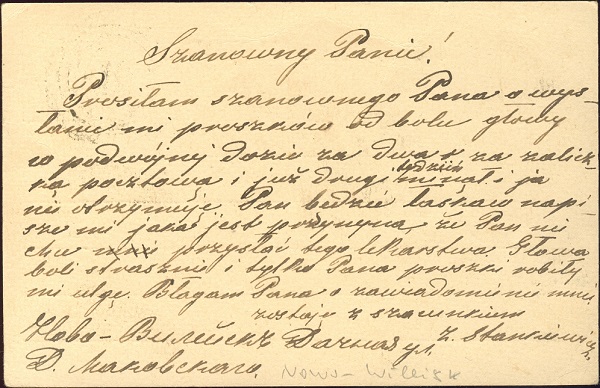 Szanowny Panie!
Prosiłam szanownego Pana o wys-
łanie mi proszków od bólu głowy
w podwójnej dozie za dwa r za zalicz-
ką pocztową i już drugi tydzień minął i ja
nie otrzymuję. Pan będzie łaskaw napi-
sze mi jaka jest przyczyna, że Pan nie
chce przysłać tego lekarstwa. Głowa
boli strasznie i tylko Pana proszki robiły
mi ulgę. Błagam Pana o zawiadomienie mnie
zostaję z szacunkiem
Z. Stankiewicz
Ново-Вилейскъ Дачная ул.
Д. Маковскаго.
Nowo-Wilejsk